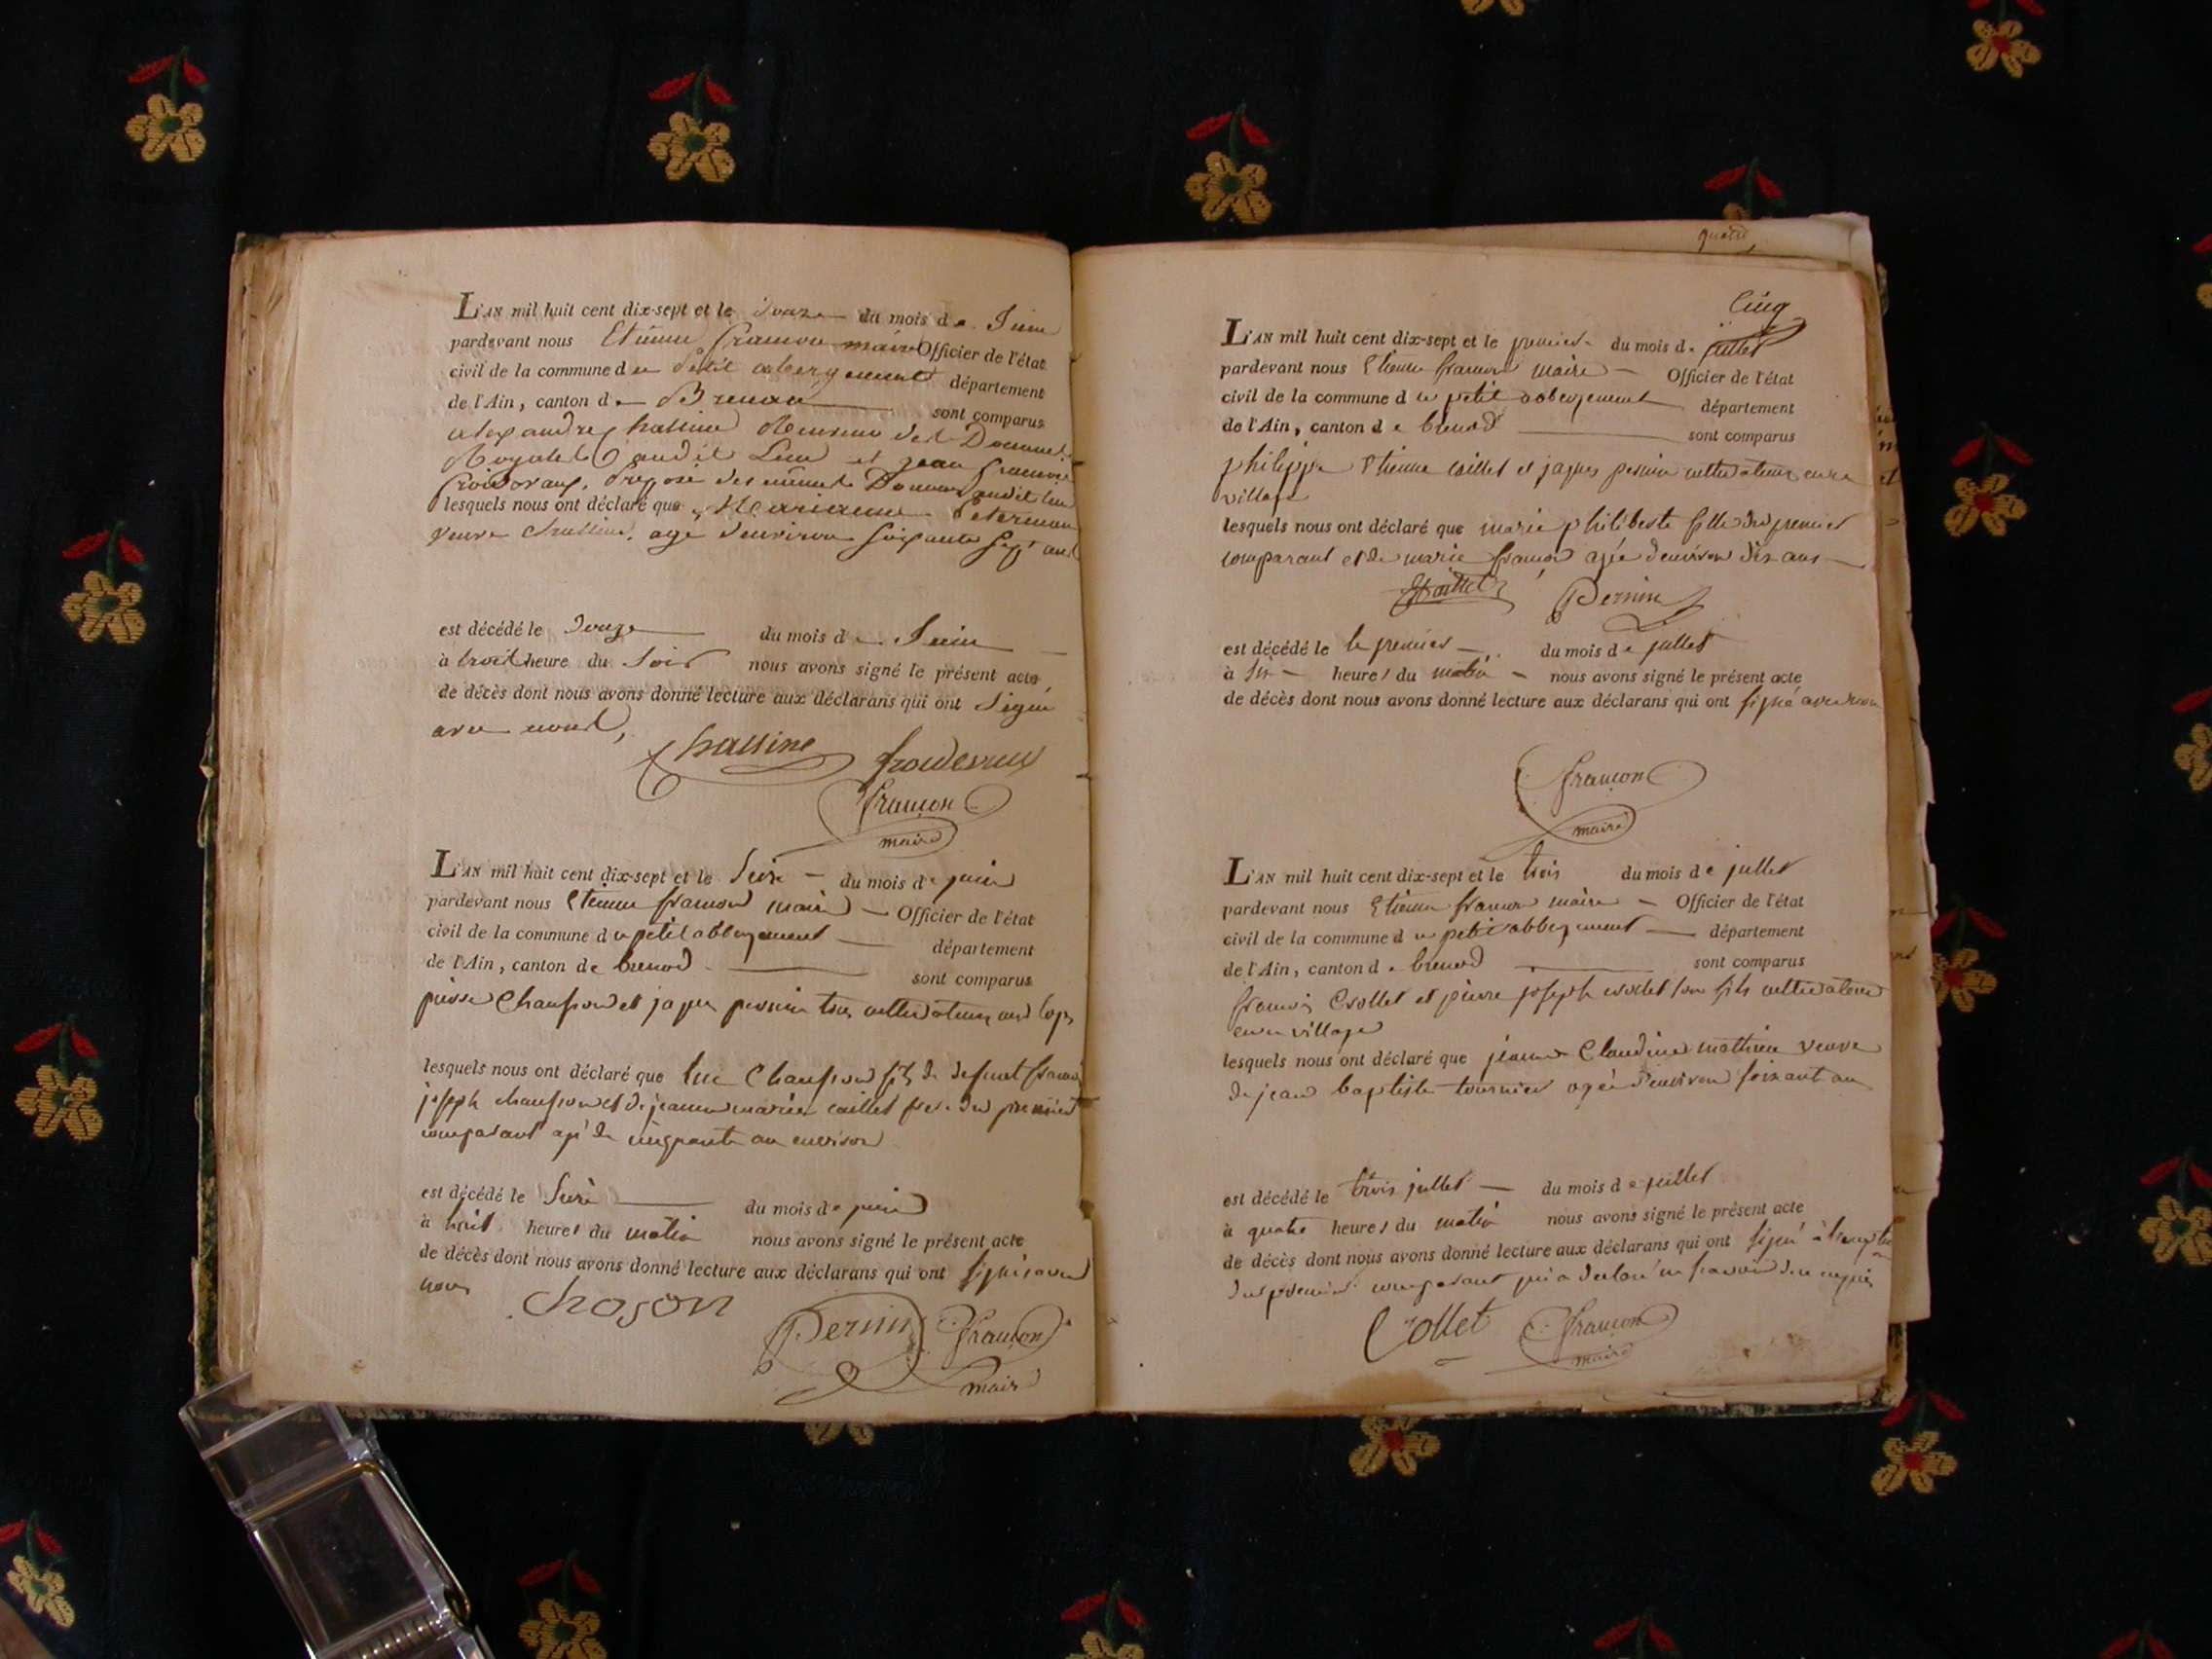 L'AN mil huit cent dix-sept et le douze du mois de Juin
pardevant nous Etienne françon maire Officier de l'état
civil de la commune du petit abergement département
de l'Ain, canton de Brenau sont comparus
chassine Receveur des Douannes
Royales audit Lieu et jean françois
préposé des mêmes Douannes audit lieu
lesquels nous ont déclaré que Marianne
veuve chassine, agé d'environ soixante sept ans
est décédé le douze du mois de Juin
à trois heure du soir nous avons signé le présent acte
de décès dont nous avons donné lecture aux déclarans qui ont signé
avec nous,
chassine
françon
maire
L'AN mil huit cent dix-sept et le seize du mois de juin
pardevant nous Etienne françon maire Officier de l'état
civil de la commune du petit abbergement département
de l'Ain, canton de brenod sont comparus
pierre et jaques pernin tous cultivateurs
lesquels nous ont déclaré que luc fils de defunt françois
joseph et de jeanne marie caillet frere du premier
comparant agé de cinquante an environ
est décédé le du mois de juin
à huit heures du matin nous avons signé le présent acte
de décès dont nous avons donné lecture aux déclarans qui ont signé avec
nous
Pernin françon
maire
quatre
cinq
L'AN mil huit cent dix-sept et le premier du mois de juillet
pardevant nous Etienne françon maire Officier de l'état
civil de la commune du petit abbergement département
de l'Ain, canton de brenod sont comparus
philippe Etienne caillet et jaques pernin cultivateurs en ce
village
lesquels nous ont déclaré que marie philiberte fille du premier
comparant et de marie françon agée d'environ dix ans
Caillet Pernin
est décédé le le premier du mois de jullet
à six heures du matin nous avons signé le présent acte
de décès dont nous avons donné lecture aux déclarans qui ont signé avec nous
françon
maire
L'AN mil huit cent dix-sept et le trois du mois de jullet
pardevant nous Etienne françon maire Officier de l'état
civil de la commune du petit abbergement département
de l'Ain, canton de brenod sont comparus
françois Collet et pierre joseph collet son fils cultivateurs
en ce village
lesquels nous ont déclaré que jeanne Claudine mathieu veuve
de jean baptiste tournier agée d'environ soixante an
est décédé le trois jullet du mois de jullet
à quatre heures du matin nous avons signé le présent acte
de décès dont nous avons donné lecture aux déclarans qui ont signé à l'exeption
du premier comparant qui a declaré ne savoir de ce requis
Collet françon
maire